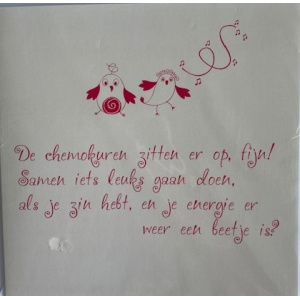 De chemokuren zitten er op, fijn!
Samen iets leuks gaan doen,
als je zin hebt, en je energie er
weer een beetje is?